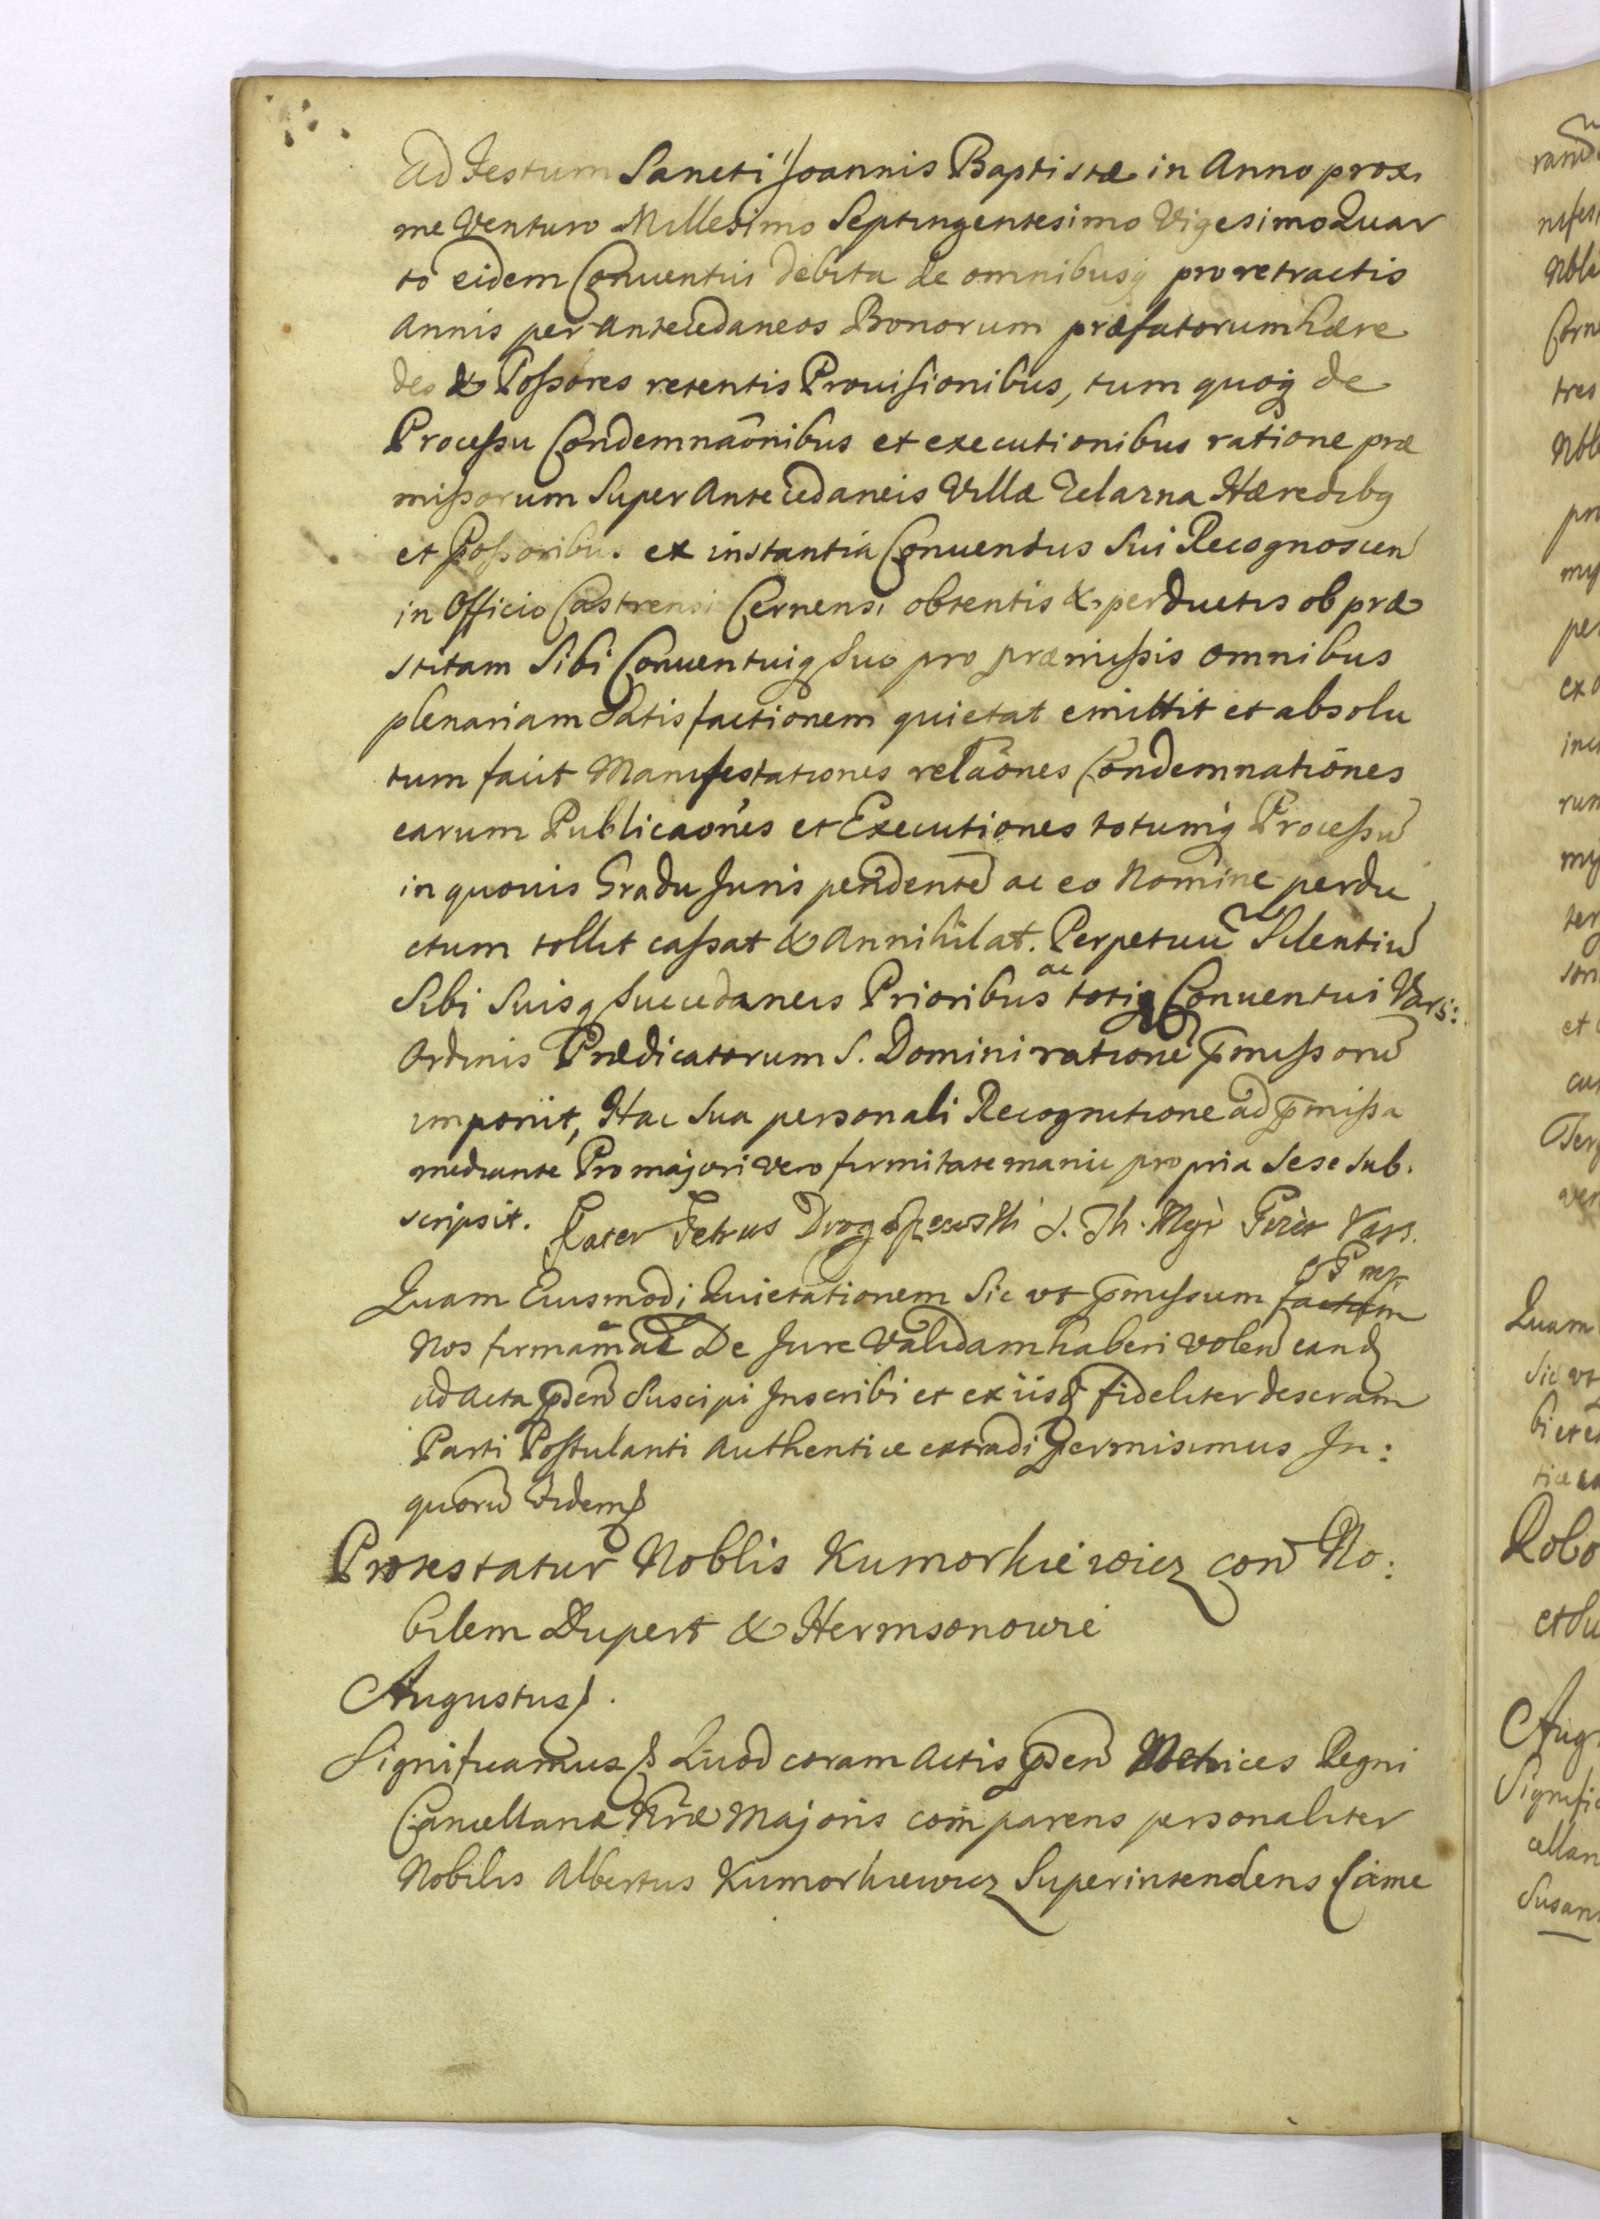 Ad Festum Sancti Joannis Baptistæ in Anno proxi
me Venturo Millesimo Septingentesimo Vigesimo Quar
to eidem Conuentui debita de omnibusq proretractis
Annis per Antecedaneos Bonorum præfatorum hære
des & Possores retentis Prouisionibus, tum quoq de
Processu Condemnaõnibus et executionibus ratione præ
missorum Super Antecedaneis Villæ Zelazna Hæredibq
et Possoribus ex instantia Conuentus Sui Recognoscen
in Officio Castrensi Cernensi obtentis & perductis ob præ
stitam Sibi Conuentuiq Suo pro præmissis omnibus
plenariam Satisfactionem quietat emittit et absolu
tum facit Manifestationes relaõnes Condemnationes
earum Publicaõnes et Executiones totumq Processũ
in quouis Gradu Juris pendentẽ ac eo Nomine perdu
ctum tollit cassat & Annihilat. Perpetuũ Silentiũ
Sibi Suisq Succedaneis Prioribus ac totiq Conuentui Vars:
Ordinis Prædicatorum S. Dominiratione p̃missorũ
imponit, Hac Sua personali Recognitione ad p̃missa
mediante Pro majori vero firmitate manu propria Sese sub.
scripsit. Frater Petrus S. Th. Mgr Vars.
Quam Eiusmodi Quietationem Sic vt p̃missum
Nos De Jure Validam haberi volen eand
ad Acta p̃sen Suscipi Inscribi et ex iisd fideliter descram
Parti Postulanti Authentice extradi Permisimus In:
quorũ Fidem
Protestatur Noblis Kumorkiewicz con No:
bilem Dupert & Hermsonowie
Augustus
Significamus Quod coram Actis p̃sen Metrices Regni
Cancellariæ Majoris comparens personaliter
Nobilis Albertus Kumorkiewicz Superintendens Came